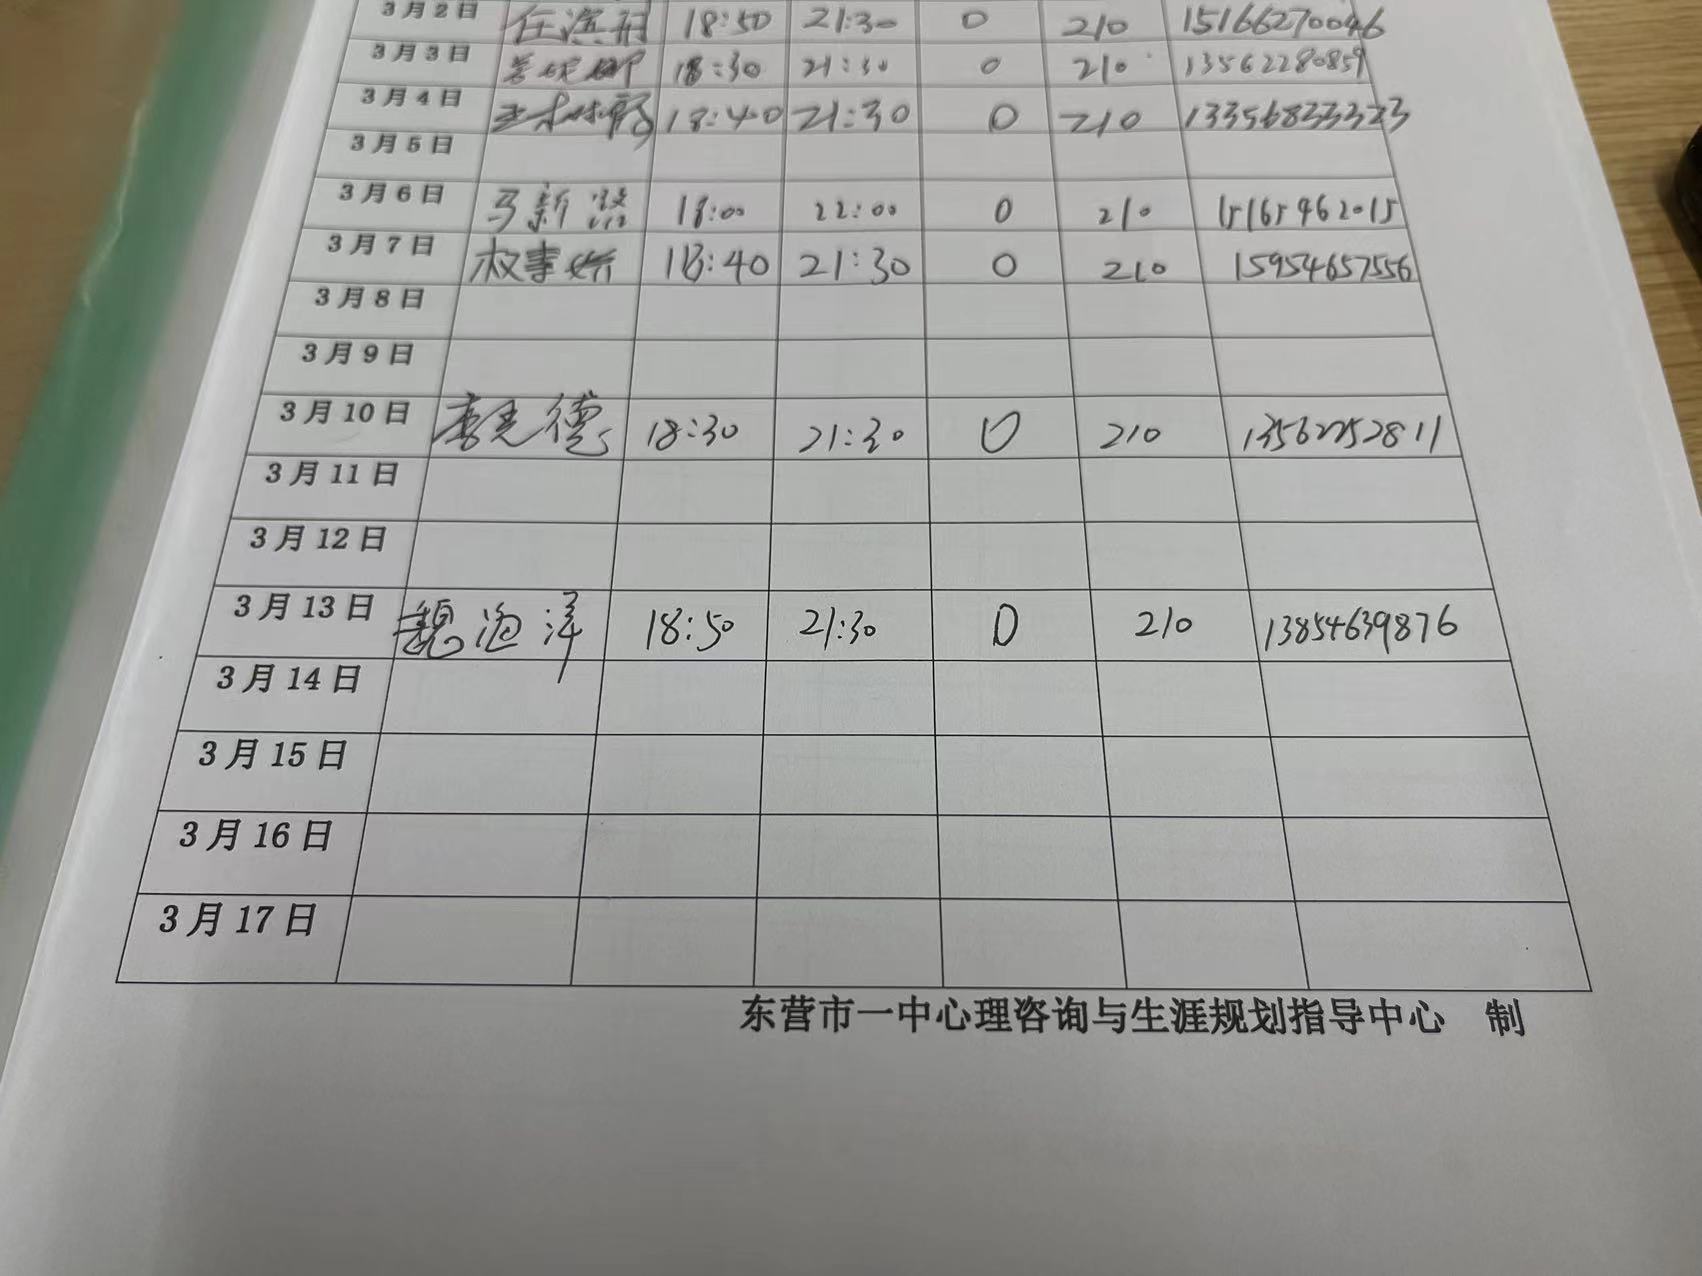 3月2日 任滨丹 18:50 21:30 0 210 15166270046
3月3日 18:30 21:30 0 210 13562280859
3月4日 18:40 21:30 0 210 13356823323
3月5日
3月6日 马新 18:00 22:00 0 210 15165462015
3月7日 18:40 21:30 0 210 15954657556
3月8日
3月9日
3月10日 德 18:30 21:30 0 210 13562252811
3月11日
3月12日
3月13日 魏海洋 18:50 21:30 0 210 13854639876
3月14日
3月15日
3月16日
3月17日
东营市一中心理咨询与生涯规划指导中心 制